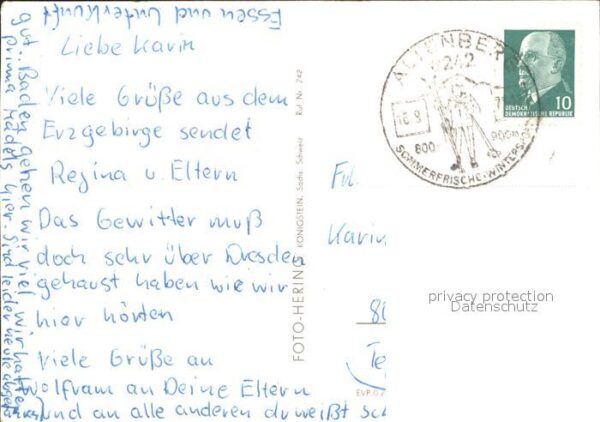 Liebe Karin
Viele Grüße aus dem
Erzgebirge sendet
Regina u. Eltern
Das Gewitter muß
doch sehr über Dresden
gehaust haben wie wir
hier hörten
viele Grüße an
Wolfram an Deine Eltern
und an alle anderen du weißt
Essen und Unterkunft
gut. Baden gehen wir viel wir hatten
prima Mädels hier. Sind leider heute
FOTO-HERING KÖNIGSTEIN, Sächs. Schweiz Ruf Nr. 242
ALTENBERG
8242
16.8
800-
900m
SOMMERFRISCHE-WINTERSPORT
DEUTSCHE
DEMOKRATISCHE REPUBLIK
10
Frl.
Karin
privacy protection
Datenschutz